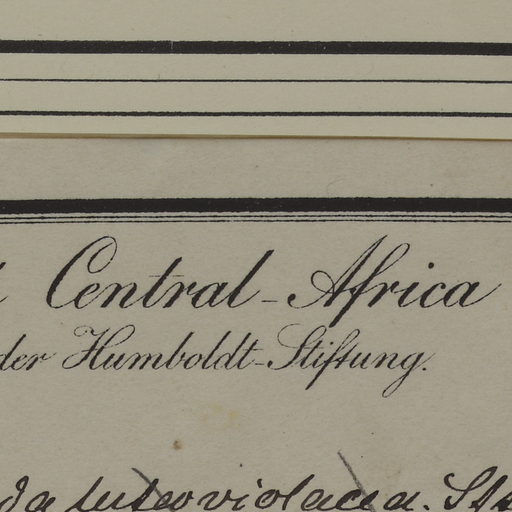 Central-Africa
der Humboldt-Stiftung.
luteoviolacea.